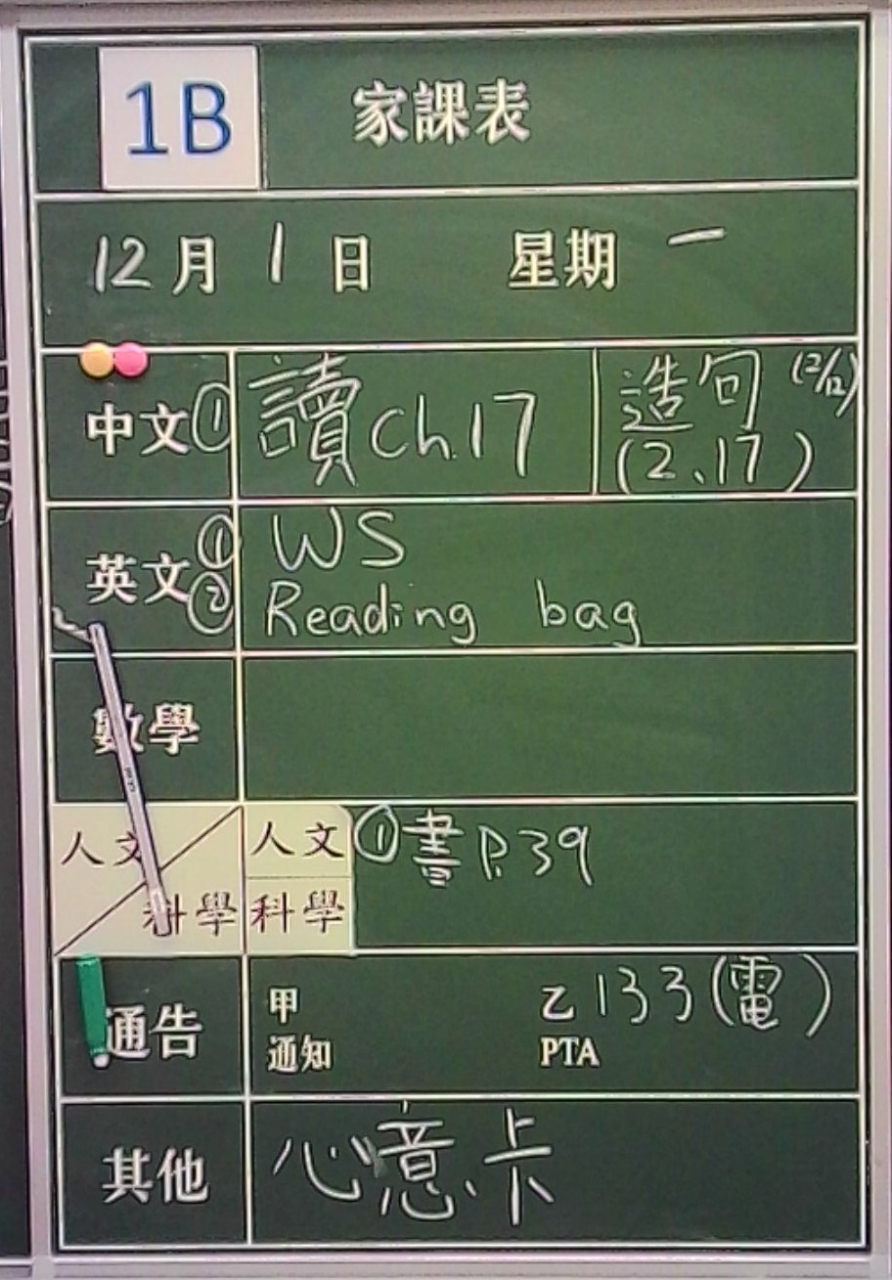 1B 家課表
12月1日 星期一
中文 ① 讀Ch.17 造句 (12/12)
(2、17)
英文 ① WS
② Reading bag
數學
人文 科學 人文 ① 書 P.39
科學
通告 甲 乙 133(電)
通知 PTA
其他 心意卡